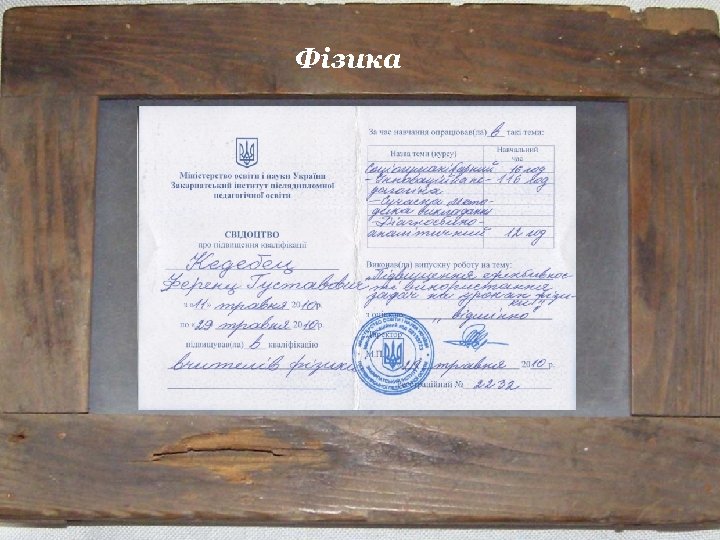 Фізика
Міністерство освіти і науки України
Закарпатський інститут післядипломної
педагогічної освіти
СВІДОЦТВО
про підвищення кваліфікації
Кедебец
Ференц Густавович
з «11» травня 2010р
по «29 травня 2010р.
підвищував(ла) в кваліфікацію
вчителів фізики
За час навчання опрацював(ла) в такі теми:
Назва теми (курсу)
Навчальний
час
Соціогуманітарний 16 год
- Інноваційна по- 116 год
дагогіка
- Сучасна мето-
дика викладання
- Діагностико-
аналітичний 12 год
Виконав(ла) випускну роботу на тему:
„Підвищення ефективнос
ті використання
задач на уроках фізи-
ки"
з оцінкою „відмінно
Директор
М.П.
29 травня 2010 р.
Реєстраційний № 2232